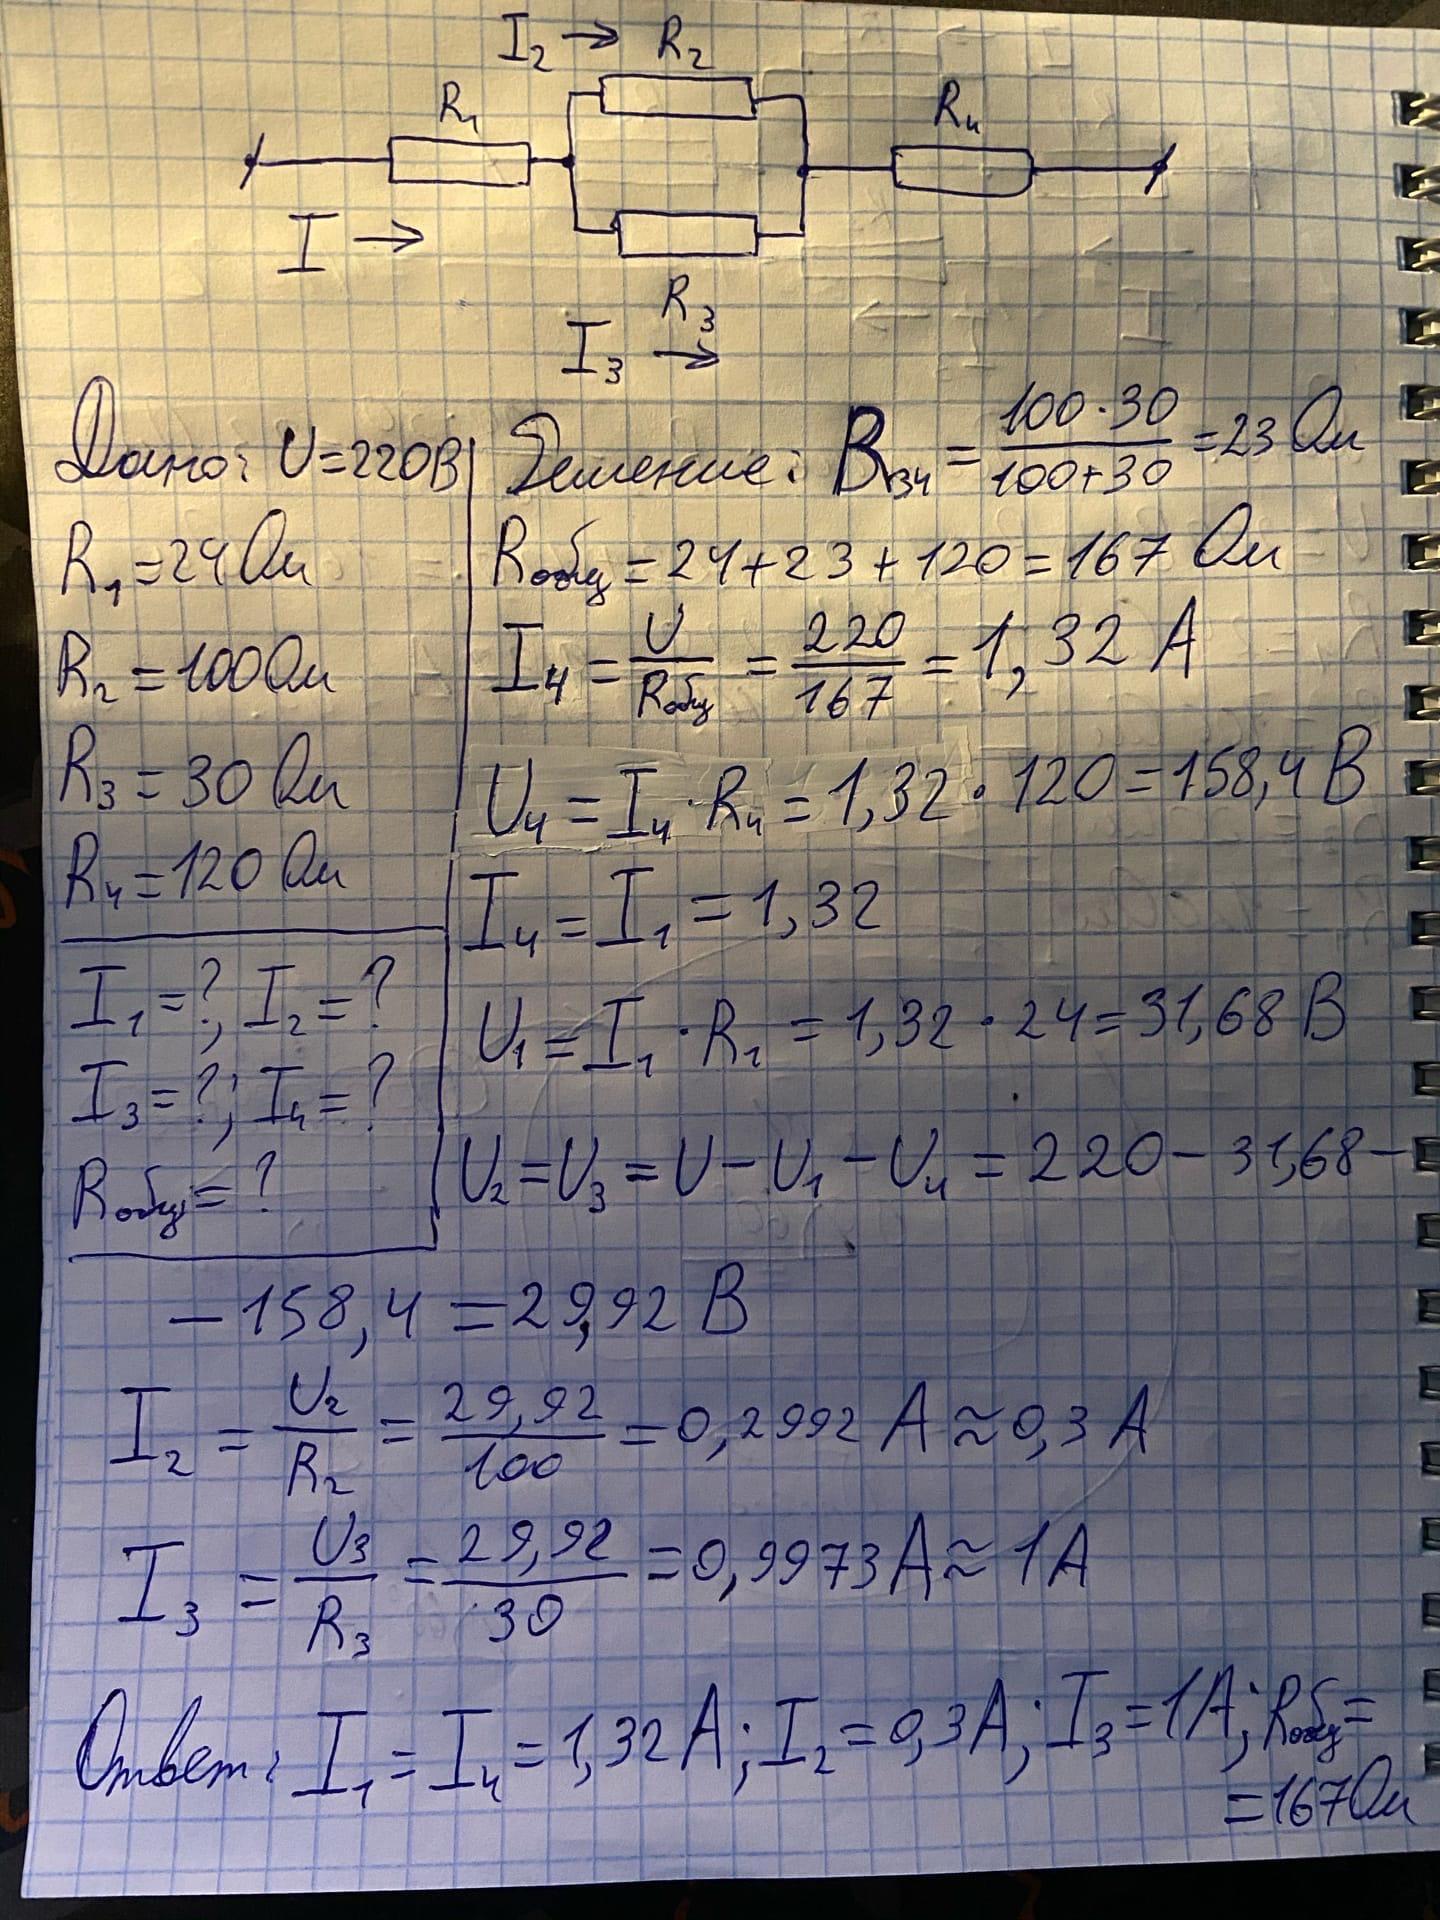 I₂ → R₂
R₁
R₄
I →
R₃
I₃ →
Дано: U=220В
R₁=24Ом
R₂=100Ом
R₃=30 Ом
R₄=120 Ом
I₁=?, I₂=?
I₃=?; I₄=?
Rобщ=?
Решение: R₃₄ = 100·30/100+30 =23 Ом
Rобщ=24+23+120=167 Ом
I₄ = U/Rобщ = 220/167 = 1,32 А
U₄ = I₄·R₄ = 1,32·120=158,4 В
I₄ = I₁ = 1,32
U₁ = I₁·R₁ = 1,32·24=31,68 В
U₂=U₃=U-U₁-U₄=220-31,68-
-158,4=29,92 В
I₂ = U₂/R₂ = 29,92/100 = 0,2992 А ≈ 0,3 А
I₃ = U₃/R₃ = 29,92/30 = 0,9973А ≈ 1А
Ответ: I₁ = I₄ = 1,32А; I₂ = 0,3А; I₃ = 1А; Rобщ =
= 167Ом